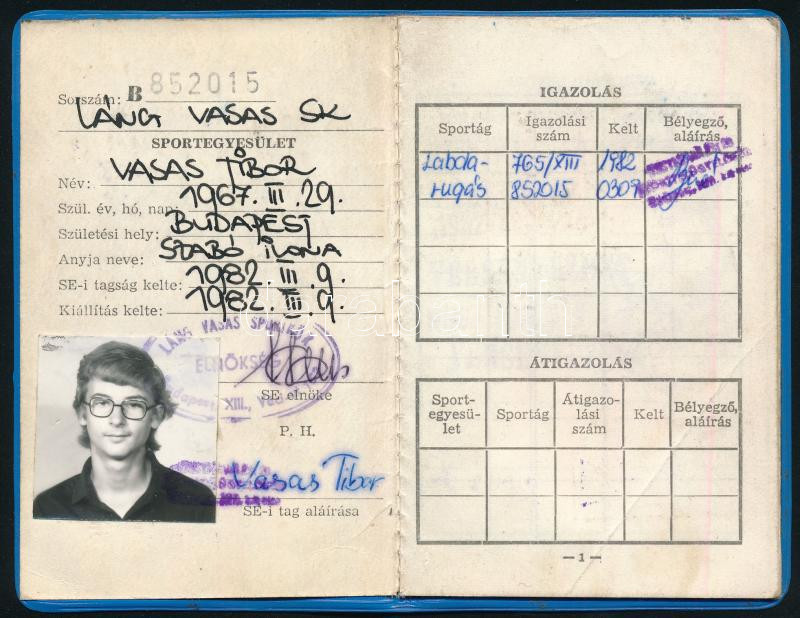 Sorszám: B 852015
LÁNG VASAS SK
SPORTEGYESÜLET
VASAS TIBOR
Név:
1967. III. 29.
Szül. év, hó, nap:
BUDAPEST
Születési hely:
SZABÓ ILONA
Anyja neve:
1982. III. 9.
SE-i tagság kelte:
1982. III. 9.
Kiállítás kelte:
LÁNG VASAS
ELNÖKSÉG
Budapest, XIII.,
SE elnöke
P. H.
Vasas Tibor
SE-i tag aláírása
IGAZOLÁS
Sportág Igazolási szám Kelt Bélyegző, aláírás
Labda- 765/XIII 1982
rugás 852015 0309
darabanth
ÁTIGAZOLÁS
Sport-egyesü-let Sportág Átigazo-lási szám Kelt Bélyegző, aláírás
— 1 —